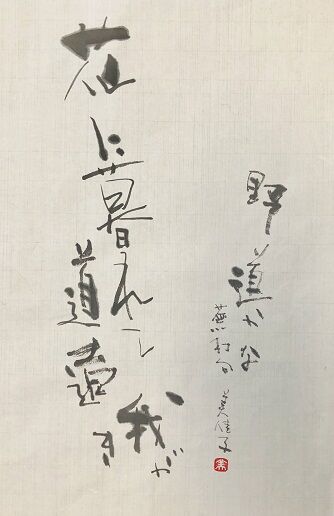 花に暮れて
我が
道遠き
野道かな
蕪村句 美佳子